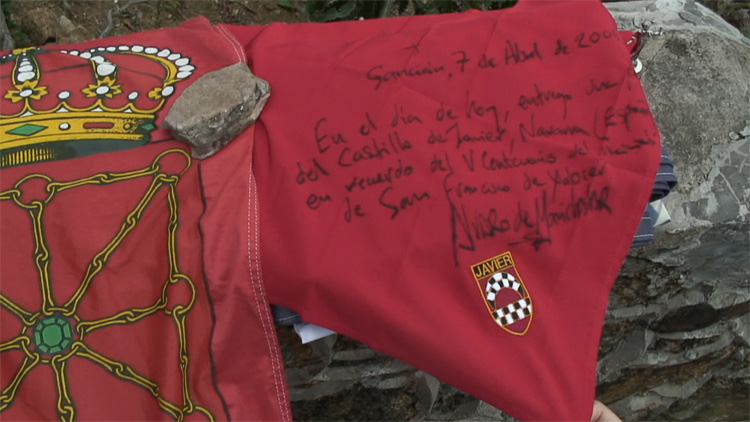 Sancián, 7 de Abril de 200
En el día de hoy, entrego una
del Castillo de Javier, Navarra (España
en recuerdo del V Centenario del
de San Francisco de Xabier
JAVIER